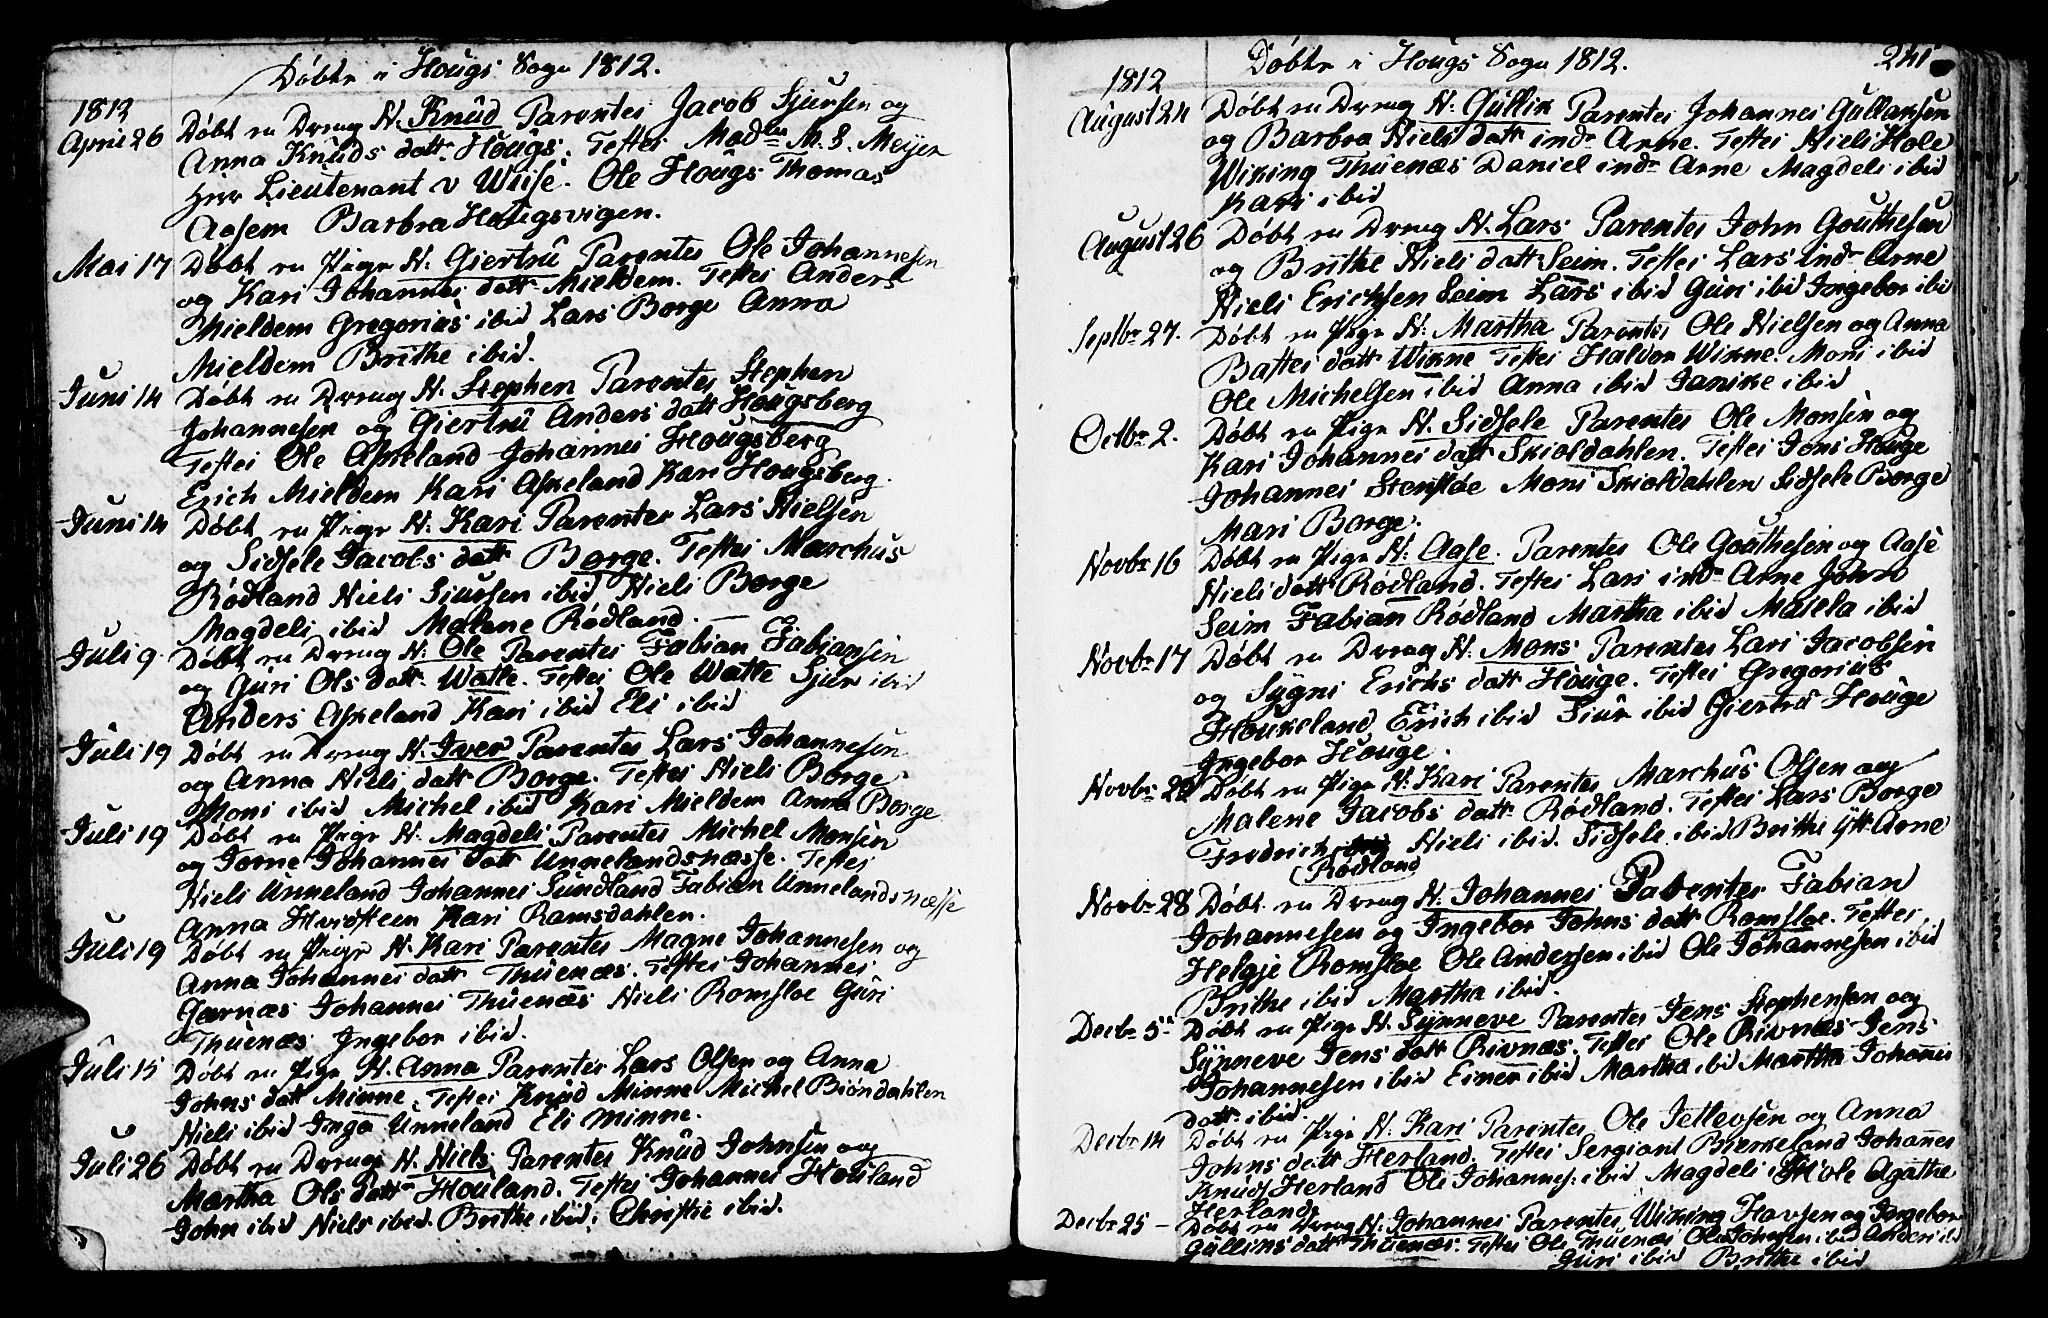 Døbte i Hougs Sogn 1812.
1812
April 26 Døbt en Dreng N. Knud Parentes Jacob Sjursen og
Anna Knuds datt. Hougs. Testes Mad. M. S. Meyer
Herr Lieutenant v Wiise. Ole Hougs Thomas
Aasem Barbra Hougsvigen.
Mai 17 Døbt en Pige N. Giertru Parentes Ole Johannesen
og Kari Johannes datt Mieldem. Testes Anders
Mieldem Gregorius ibid Lars Borge Anna
Mieldem Brithe ibid.
Juni 14 Døbt en Dreng N. Stephen Parentes Stephen
Johannesen og Giertru Anders datt Hougsberg
Testes Ole Askeland Johannes Hougsberg
Erich Mieldem Kari Askeland Kari Hougsberg.
Juni 14 Døbt en Pige N. Kari Parentes Lars Nielsen
og Sidsele Jacobs datt Borge. Testes Marchus
Rødland Niels Siursen ibid Niels Borge
Magdeli ibid Malene Rødland.
Juli 9 Døbt en Dreng N. Ole Parentes Fabian Fabiansen
og Guri Ols datt. Watle. Testes Ole Watle Sjur ibid
Anders Askeland Kari ibid Eli ibid
Juli 19 Døbt en Dreng N. Iver Parentes Lars Johannesen
og Anna Niels datt Borge. Testes Niels Borge
Mons ibid Michel ibid Kari Mieldem Anna Borge
Juli 19 Døbt en Pige N. Magdeli Parentes Michel Monsen
og Jorne Johannes datt Unnelandsnæsse. Testes
Niels Unneland Johannes Sundland Fabian Unnelandsnæsse
Anna Hvidsteen Kari Ramsdahlen.
Juli 19 Døbt en Pige N. Kari Parentes Magne Johannesen og
Anna Johannes datt Thuenæs. Testes Johannes
Garnæs Johannes Thuenæs Niels Romsloe Guri
Thuenæs Ingebor ibid.
Juli 15 Døbt en Pige N. Anna Parentes Lars Olsen og Anna
Johns datt Minne. Testes Knud Minne Michel Biøndahlen
Niels ibid Inga Unneland Eli Minne.
Juli 26 Døbt en Dreng N. Niels Parentes Knud Johnsen og
Martha Ols datt Houland. Testes Johannes Houland
John ibid Niels ibid. Brithe ibid. Christie ibid.
Døbte i Hougs Sogn 1812. 241
1812
August 24 Døbt en Dreng N. Gullik Parentes Johannes Gullaksen
og Barbra Niels datt indr Arne. Testes Niels Hole
Wiking Thuenæs Daniel indr Arne Magdeli ibid
Kari ibid
August 26 Døbt en Dreng N. Lars Parentes John Gouthesen
og Brithe Niels datt Seim. Testes Lars indr Arne
Niels Erichsen Seim Lars ibid Guri ibid Ingebor ibid
Septbr 27. Døbt en Pige N. Martha Parentes Ole Nielsen og Anna
Bastes datt Wikne Testes Haldor Wikne. Mons ibid
Ole Michelsen ibid Anna ibid Janike ibid
Octbr 2. Døbt en Pige N. Sidsele Parentes Ole Monsen og
Kari Johannes datt Skioldahlen. Testes Jons Houge
Johannes Stensloe Mons Skioldahlen Sidsele Borge
Mari Borge.
Novbr 16 Døbt en Pige N. Aase. Parentes Ole Gouthesen og Aase
Niels datt Rødland. Testes Lars indr Arne John
Seim Fabian Rødland Martha ibid Malela ibid
Novbr 17 Døbt en Dreng N. Mons Parentes Lars Jacobsen
og Sygni Erichs datt Houge. Testes Gregorius
Houkeland Erich ibid Siur ibid Giertru Houge
Ingebor Houge.
Novbr 22 Døbt en Pige N. Kari Parentes Marchus Olsen og
Malene Jacobs datt. Rødland. Testes Lars Borge
Fredrich Niels ibid. Sidsele ibid Brithe ytt Arne
Rødland
Novbr 28 Døbt en Dreng N. Johannes Parentes Fabian
Johannesen og Ingebor Johns datt Romsloe. Testes
Helgje Romsloe Ole Andersen ibid Ole Johannesen ibid
Brithe ibid Martha ibid.
Decbr 5 Døbt en Pige N. Synneve Parentes Jens Stephensen og
Synneve Jens datt Rivnæs. Testes Ole Rivnæs Jens
Johannesen ibid Einer ibid Martha ibid Martha Johannes
datt. ibid
Decbr 14 Døbt en Pige N. Kari Parentes Ole Detlevsen og Anna
Johns datt Herland. Testes Sergiant Bierkeland Johannes
Knuds Herland Ole Johannes. ibid Magdeli Hole Agathe
Herland.
Decbr 25 Døbt en Dreng N. Johannes Parentes Wiking Havsen og Ingebor
Gullins datt Thuenæs. Testes Ole Thuenæs Ole Johnsen ibid Anders ibid
Guri ibid Brithe ibid